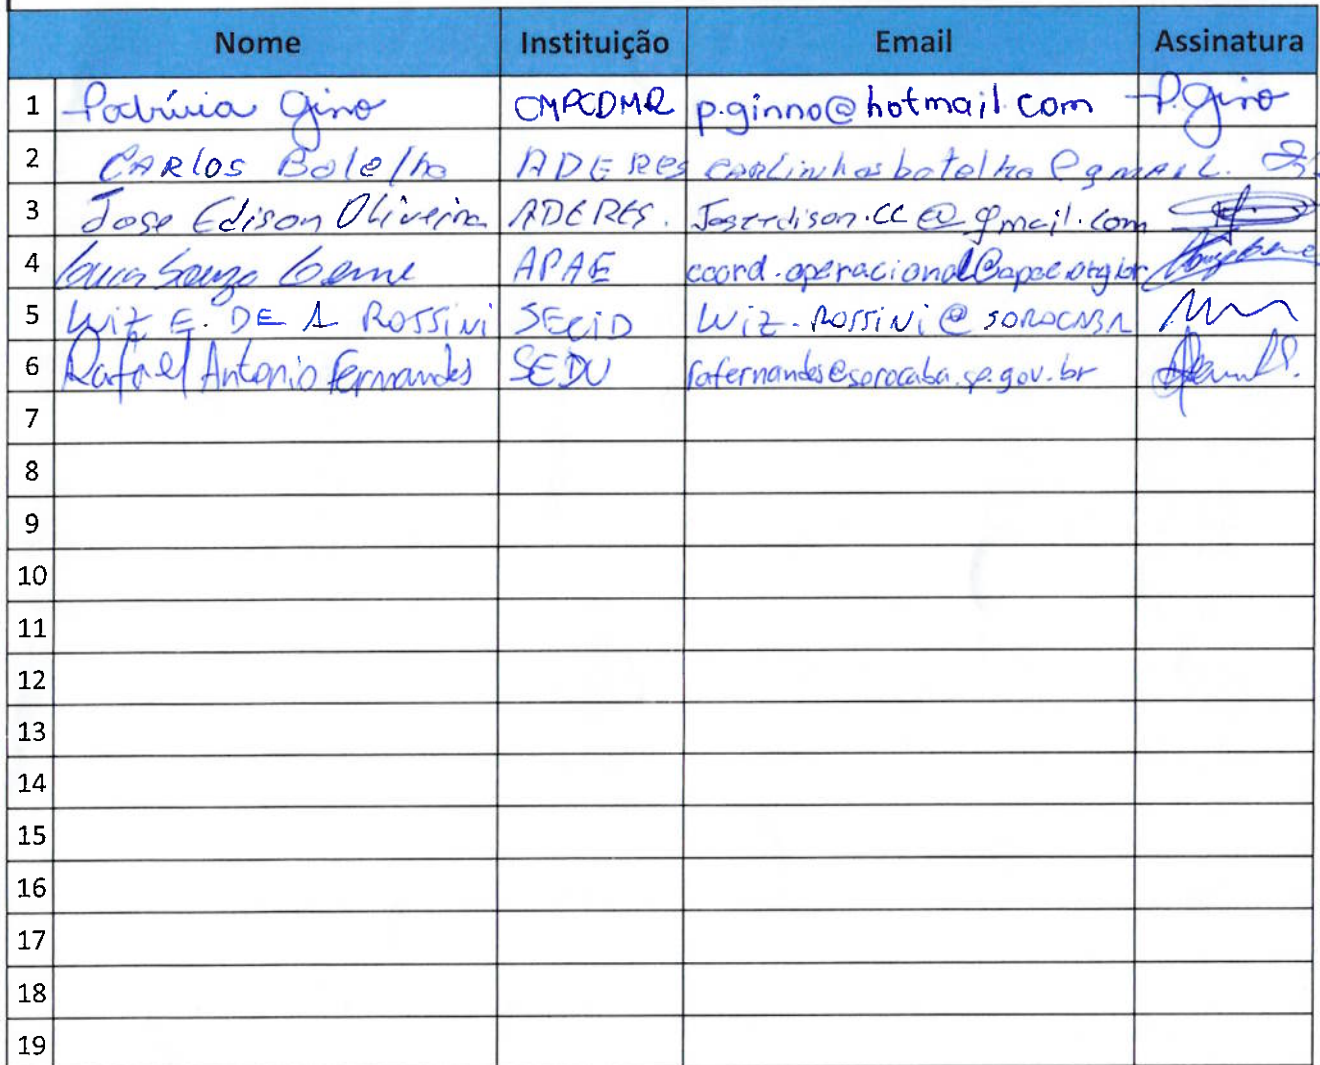 Nome Instituição Email Assinatura
1 Patrícia Gino CMPCDMR p.ginno@hotmail.com P.Gino
2 CARLOS Botelho ADERES carlinhosbotelho@gmail.
3 Jose Edison Oliveira ADERES. Joseedison.cc@gmail.com
4 Souza Leme APAE coord.operacional@apae.org.br
5 LUIZ E. DE A ROSSINI SECID LUIZ.ROSSINI@SOROCABA
6 Rafael Antonio Fernandes SEDU rafernandes@sorocaba.sp.gov.br
7
8
9
10
11
12
13
14
15
16
17
18
19